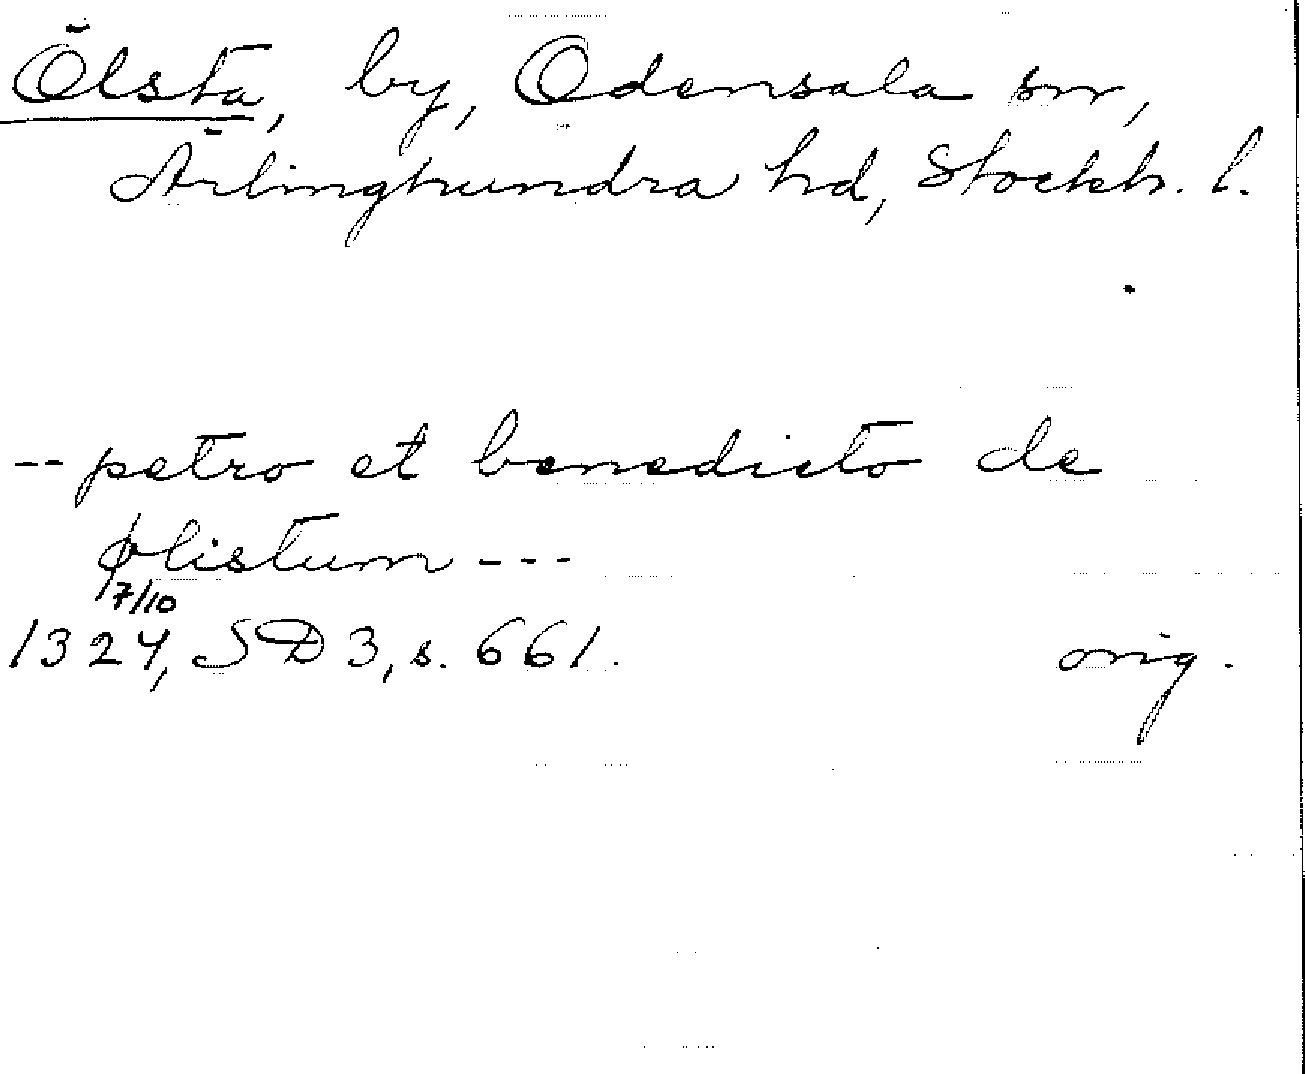 Ölsta, by, Odensala sn,
Ärlinghundra hd, Stockh. l.
-- petro et benedicto de
ølistum ---
17/10
1324, SD 3, s. 661.
orig.